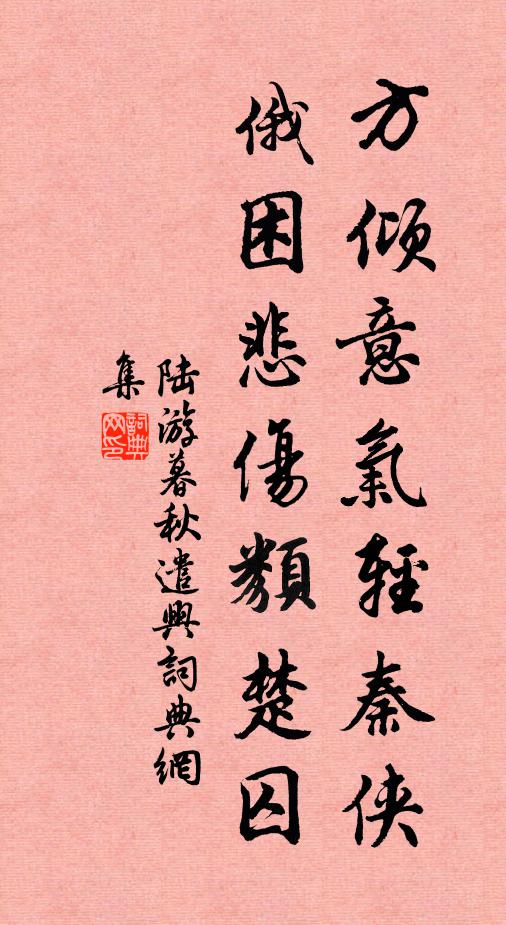 方倾意氣輕秦侠
俄困悲傷類楚囚
陆游暮秋遣興詞典網
集
詞典
网印